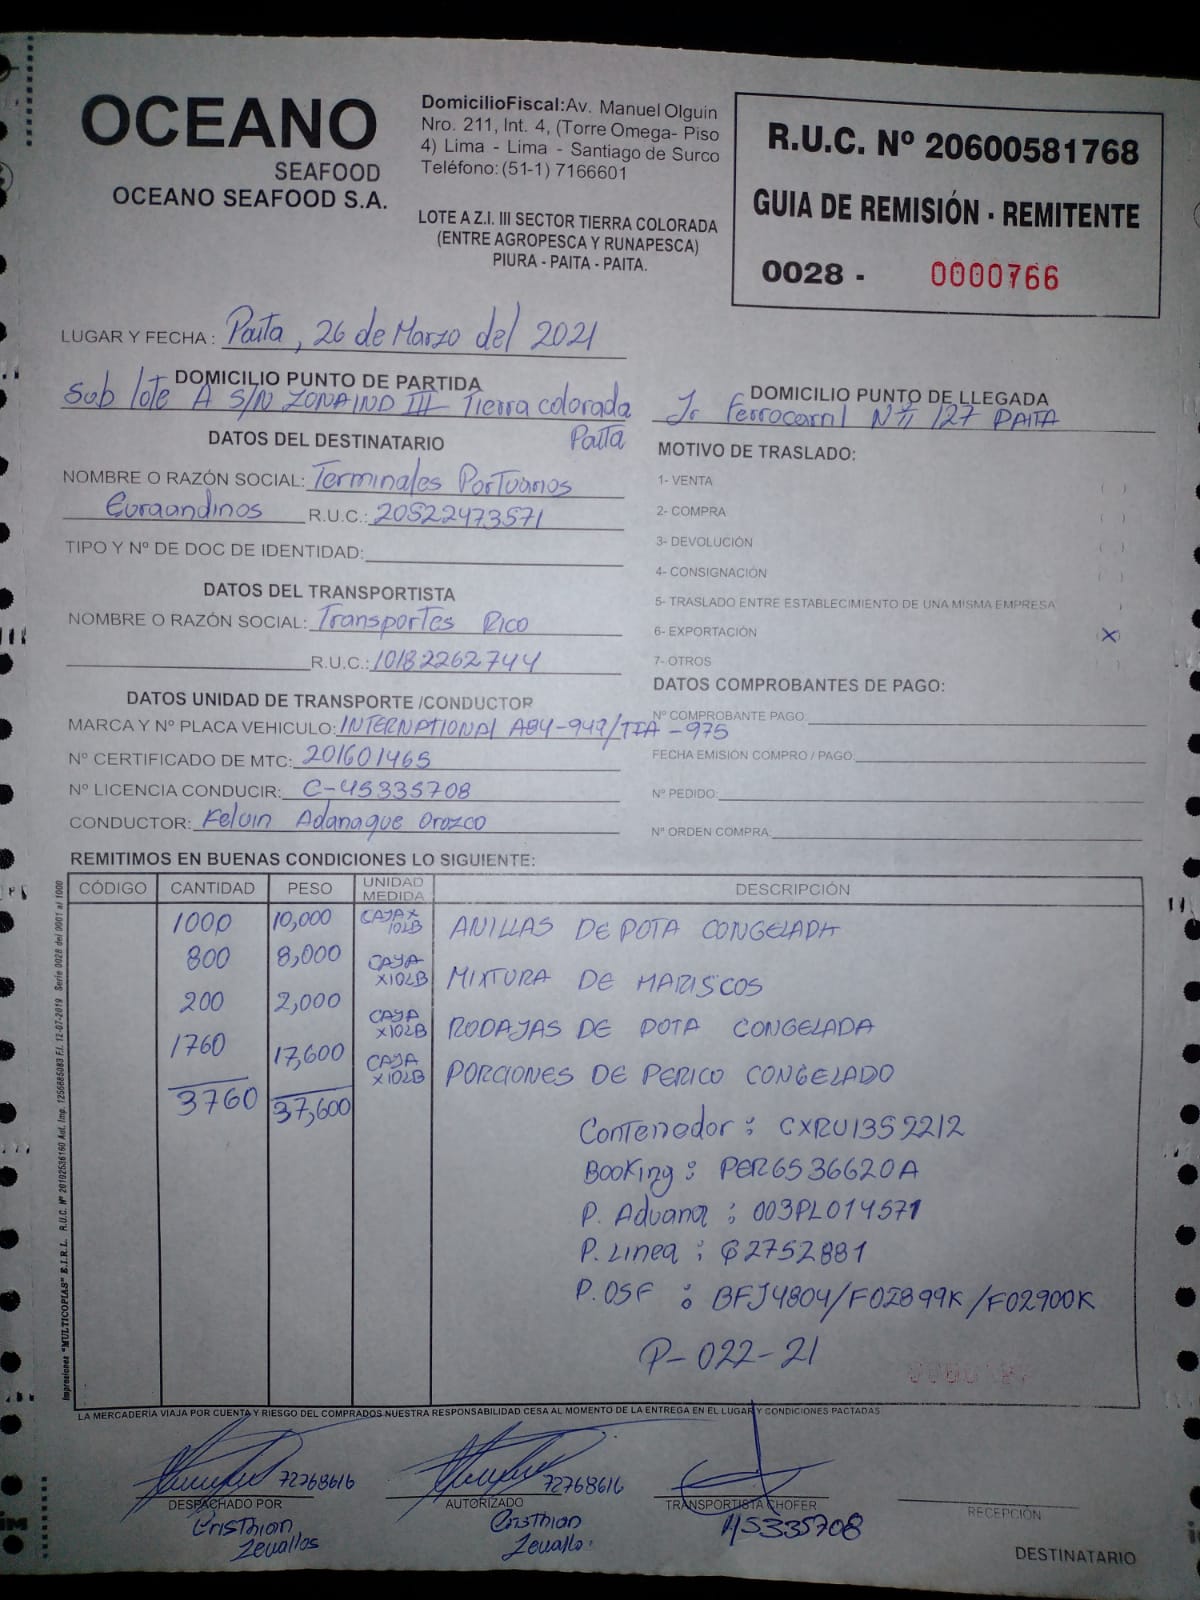 OCEANO
SEAFOOD
OCEANO SEAFOOD S.A.
DomicilioFiscal:Av. Manuel Olguin
Nro. 211, Int. 4, (Torre Omega- Piso
4) Lima - Lima - Santiago de Surco
Teléfono: (51-1) 7166601
LOTE A Z.I. III SECTOR TIERRA COLORADA
(ENTRE AGROPESCA Y RUNAPESCA)
PIURA - PAITA - PAITA.
R.U.C. Nº 20600581768
GUIA DE REMISIÓN - REMITENTE
0028 - 0000766
LUGAR Y FECHA : Paita, 26 de Marzo del 2021
DOMICILIO PUNTO DE PARTIDA
Sub lote A S/N ZONA IND III Tierra colorada
Paita
DOMICILIO PUNTO DE LLEGADA
Jr Ferrocarril Nº 127 PAITA
DATOS DEL DESTINATARIO
NOMBRE O RAZÓN SOCIAL: Terminales Portuarios
Euroandinos R.U.C.: 20522473571
TIPO Y Nº DE DOC DE IDENTIDAD:
DATOS DEL TRANSPORTISTA
NOMBRE O RAZÓN SOCIAL: Transportes Rico
R.U.C.: 10182262744
DATOS UNIDAD DE TRANSPORTE /CONDUCTOR
MARCA Y Nº PLACA VEHICULO: INTERNATIONAL A84-949/TIA-975
Nº CERTIFICADO DE MTC: 201601465
Nº LICENCIA CONDUCIR: C-45335708
CONDUCTOR: Kelvin Adanaque Orozco
MOTIVO DE TRASLADO:
1- VENTA ( )
2- COMPRA ( )
3- DEVOLUCIÓN ( )
4- CONSIGNACIÓN ( )
5- TRASLADO ENTRE ESTABLECIMIENTO DE UNA MISMA EMPRESA
6- EXPORTACIÓN (X)
7- OTROS
DATOS COMPROBANTES DE PAGO:
Nº COMPROBANTE PAGO
FECHA EMISIÓN COMPRO / PAGO.
Nº PEDIDO:
Nº ORDEN COMPRA:
REMITIMOS EN BUENAS CONDICIONES LO SIGUIENTE:
CÓDIGO CANTIDAD PESO UNIDAD MEDIDA DESCRIPCIÓN
1000 10,000 CAJA X 10LB ANILLAS DE POTA CONGELADA
800 8,000 CAJA X10LB MIXTURA DE MARISCOS
200 2,000 CAJA X10LB RODAJAS DE POTA CONGELADA
1760 17,600 CAJA X10LB PORCIONES DE PERICO CONGELADO
3760 37,600
Contenedor : CXRU1352212
Booking : PER6536620A
P. Aduana : 003PL014571
P. Linea : G2752881
P. OSF : BFJ4804/F02899K/F02900K
P-022-21
Impresiones "MULTICOPIAS" E.I.R.L. R.U.C. Nº 20102536160 Aut. Imp. 1255685083 F.I. 12-07-2019 Serie 0028 del 0001 al 1000
LA MERCADERÍA VIAJA POR CUENTA Y RIESGO DEL COMPRADOS NUESTRA RESPONSABILIDAD CESA AL MOMENTO DE LA ENTREGA EN EL LUGAR Y CONDICIONES PACTADAS
72768616
DESPACHADO POR
Cristhian
Zevallos
72768616
AUTORIZADO
Cristhian
Zevallo
TRANSPORTISTA CHOFER
45335708
RECEPCIÓN
DESTINATARIO